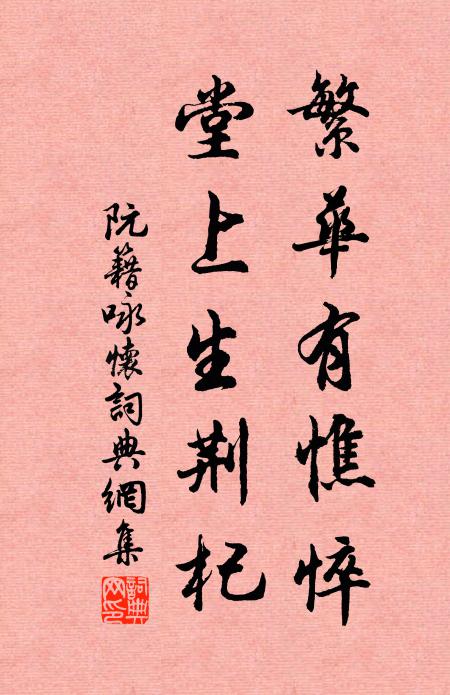 繁華有憔悴
堂上生荆杞
阮籍咏懷詞典網集
詞典網印